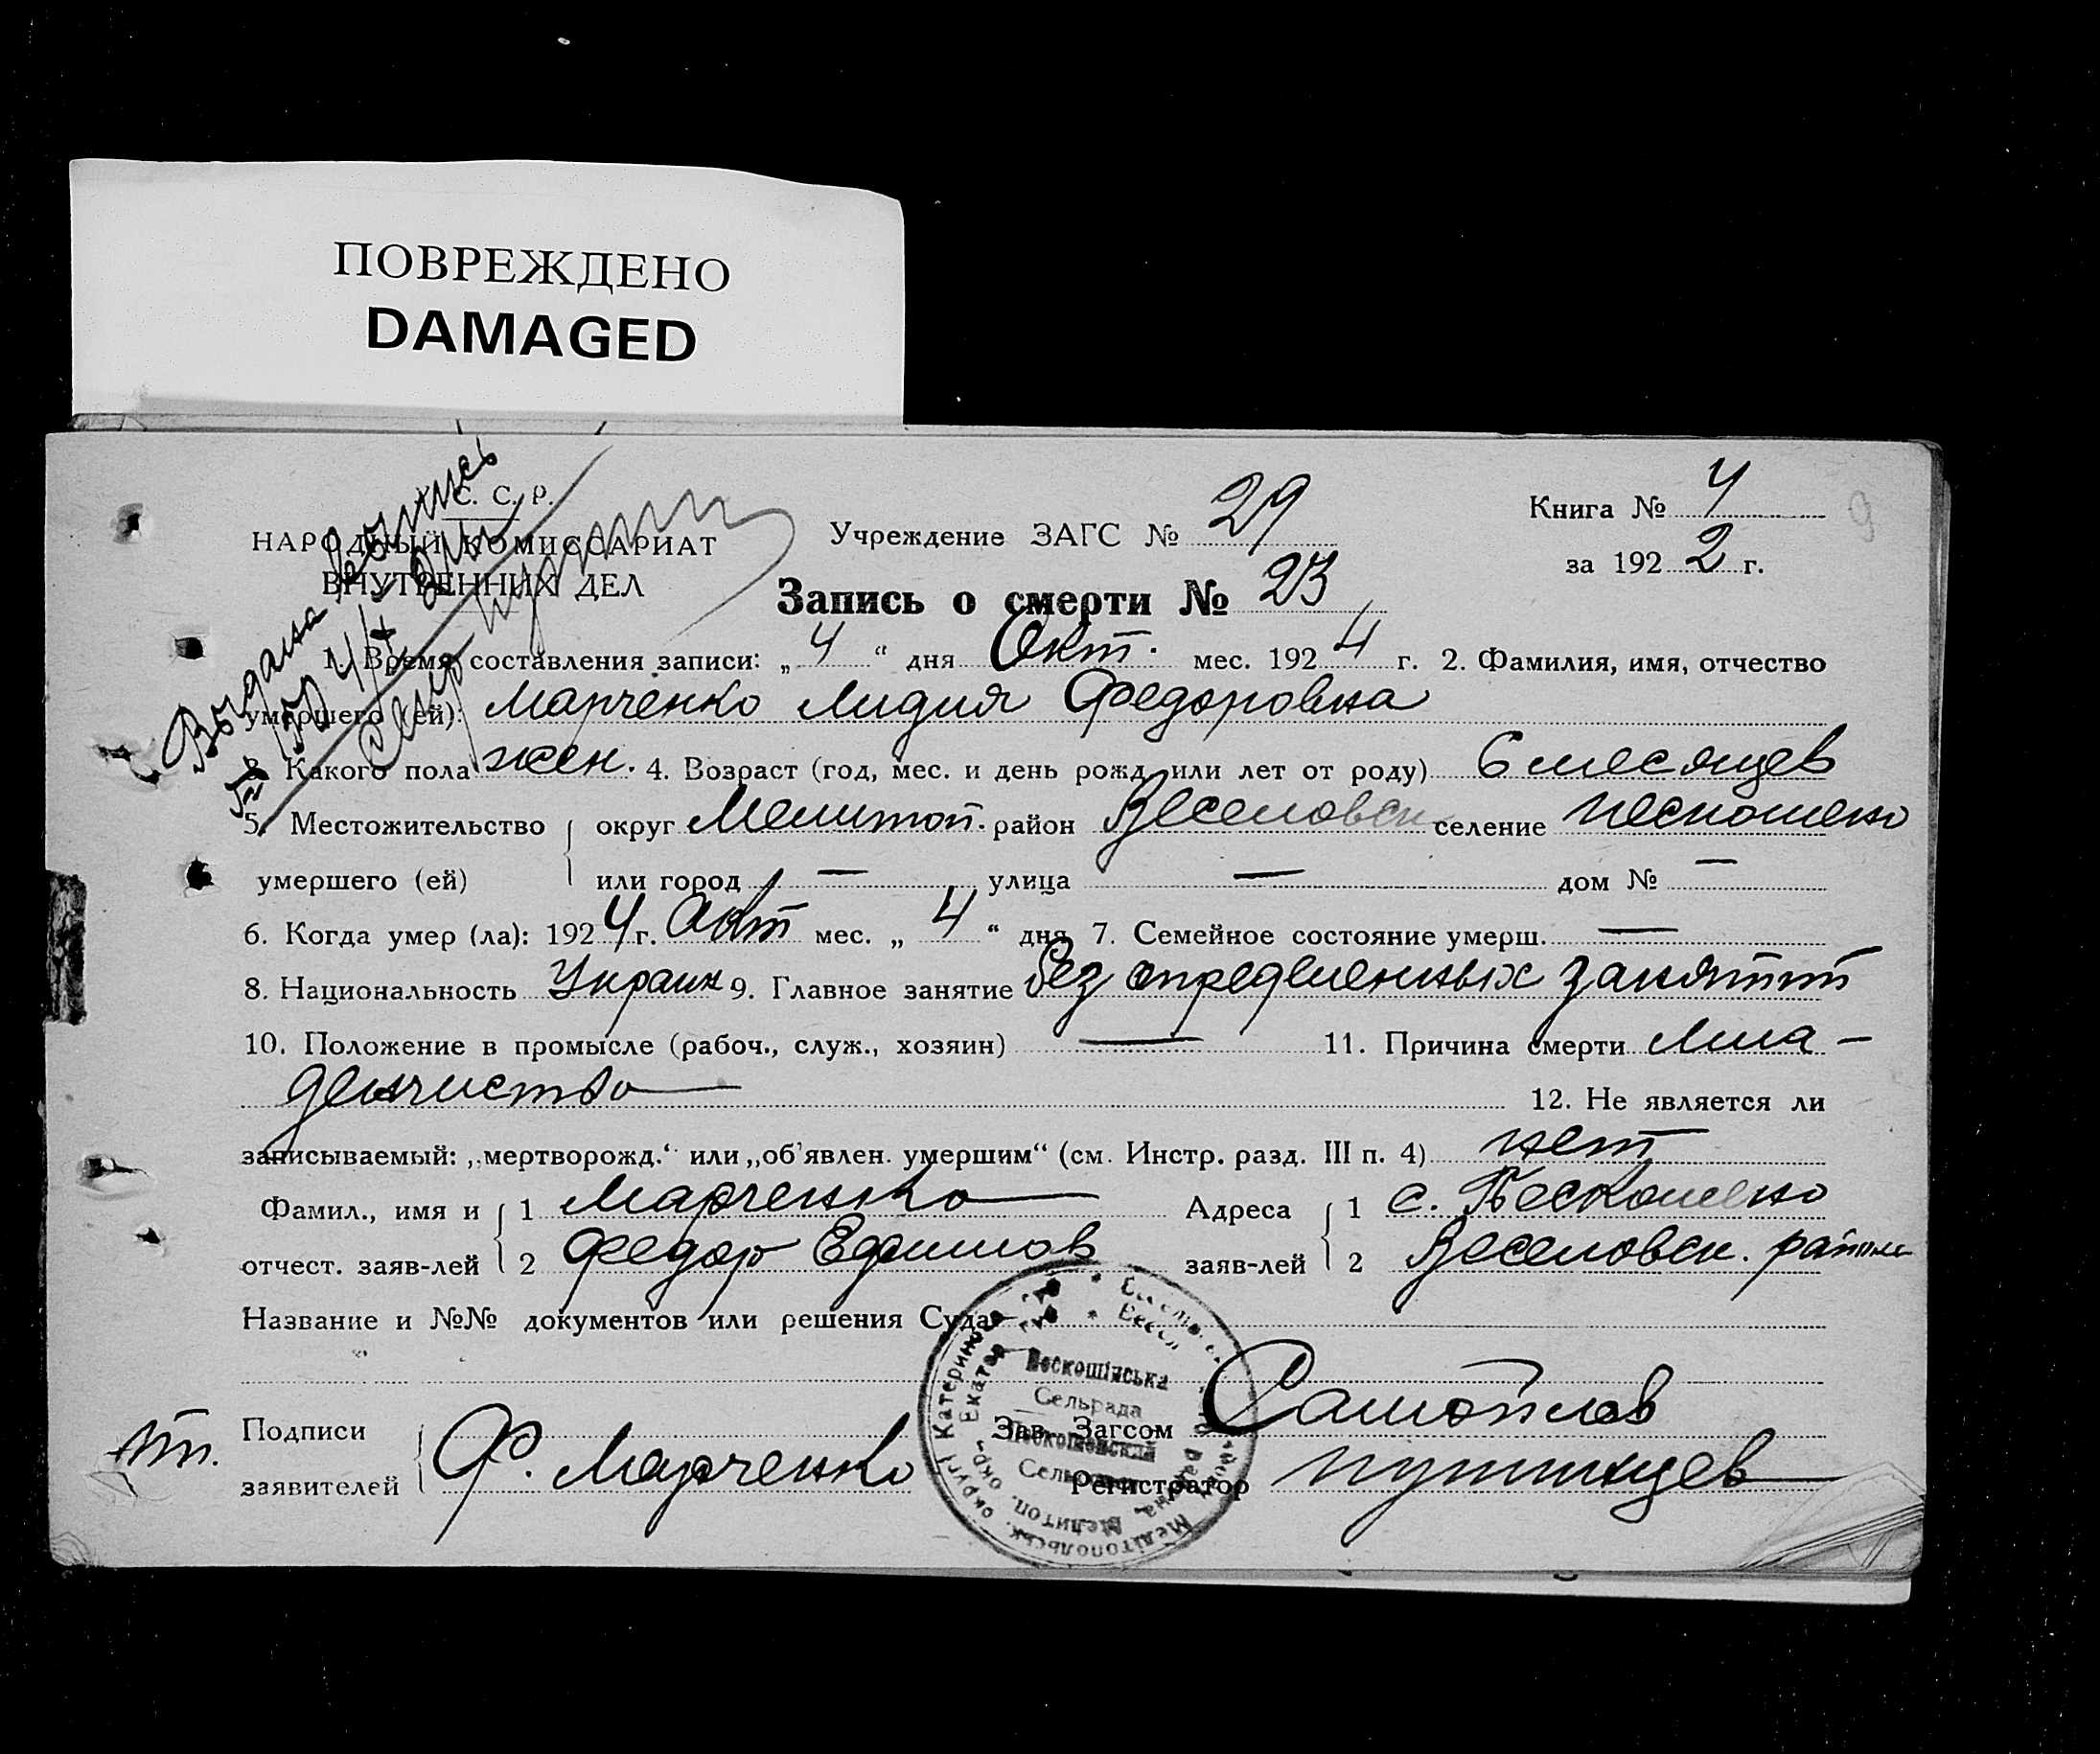 ПОВРЕЖДЕНО
DAMAGED
С. С. Р.
НАРОДНЫЙ КОМИССАРИАТ
ВНУТРЕННИХ ДЕЛ
Выдана
Учреждение ЗАГС № 29
Книга № 4
за 1922 г.
9
Запись о смерти № 23
1. Время составления записи: „4“ дня Окт. мес. 1924 г. 2. Фамилия, имя, отчество
умершего (ей): Марченко Лидия Федоровна
3. Какого пола жен. 4. Возраст (год, мес. и день рожд. или лет от роду) 6 месяцев
5. Местожительство округ Мелитоп. район Веселовск селение Пескошено
умершего (ей) или город — улица — дом № —
6. Когда умер (ла): 1924 г. Окт мес. „4“ дня 7. Семейное состояние умерш. —
8. Национальность Украин 9. Главное занятие без определенных занятий
10. Положение в промысле (рабоч., служ., хозяин) — 11. Причина смерти Мла-
денчество
12. Не является ли
записываемый: „мертворожд.“ или „об'явлен. умершим“ (см. Инстр. разд. III п. 4) нет
Фамил., имя и 1 Марченко Адреса 1 с. Пескошено
отчест. заяв-лей 2 Федор Ефимов заяв-лей 2 Веселовск. района
Название и №№ документов или решения Суда
Пескошинська
Сельрада
Подписи
заявителей Ф. Марченко
Зав. Загсом Самойлов
Регистратор Путинцев